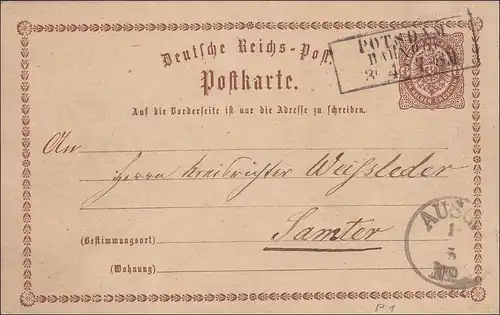 POTSDAM
BAHNH.
Deutsche Reichs-Post.
Postkarte.
Auf die Vorderseite ist nur die Adresse zu schreiben.
An
Herrn Kreisrichter Weißleder
Samter
(Bestimmungsort)
(Wohnung)
AUSG
1
5
No
P 1